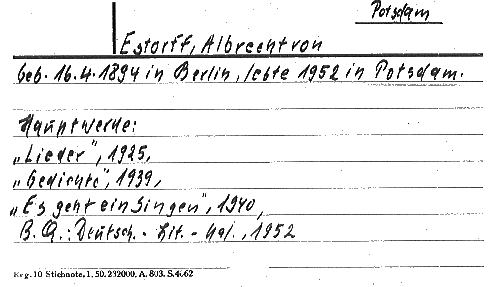 Potsdam
Estorff, Albrecht von
geb. 16.4.1894 in Berlin, lebte 1952 in Potsdam.
Hauptwerke:
„Lieder", 1925,
„Gedichte", 1939,
„Es geht ein Singen", 1940,
B. Q.: Deutsch. - Lit. - Kal., 1952
Krg. 10 Stichnote. 1. 50. 232000. A. 803. S. 4662